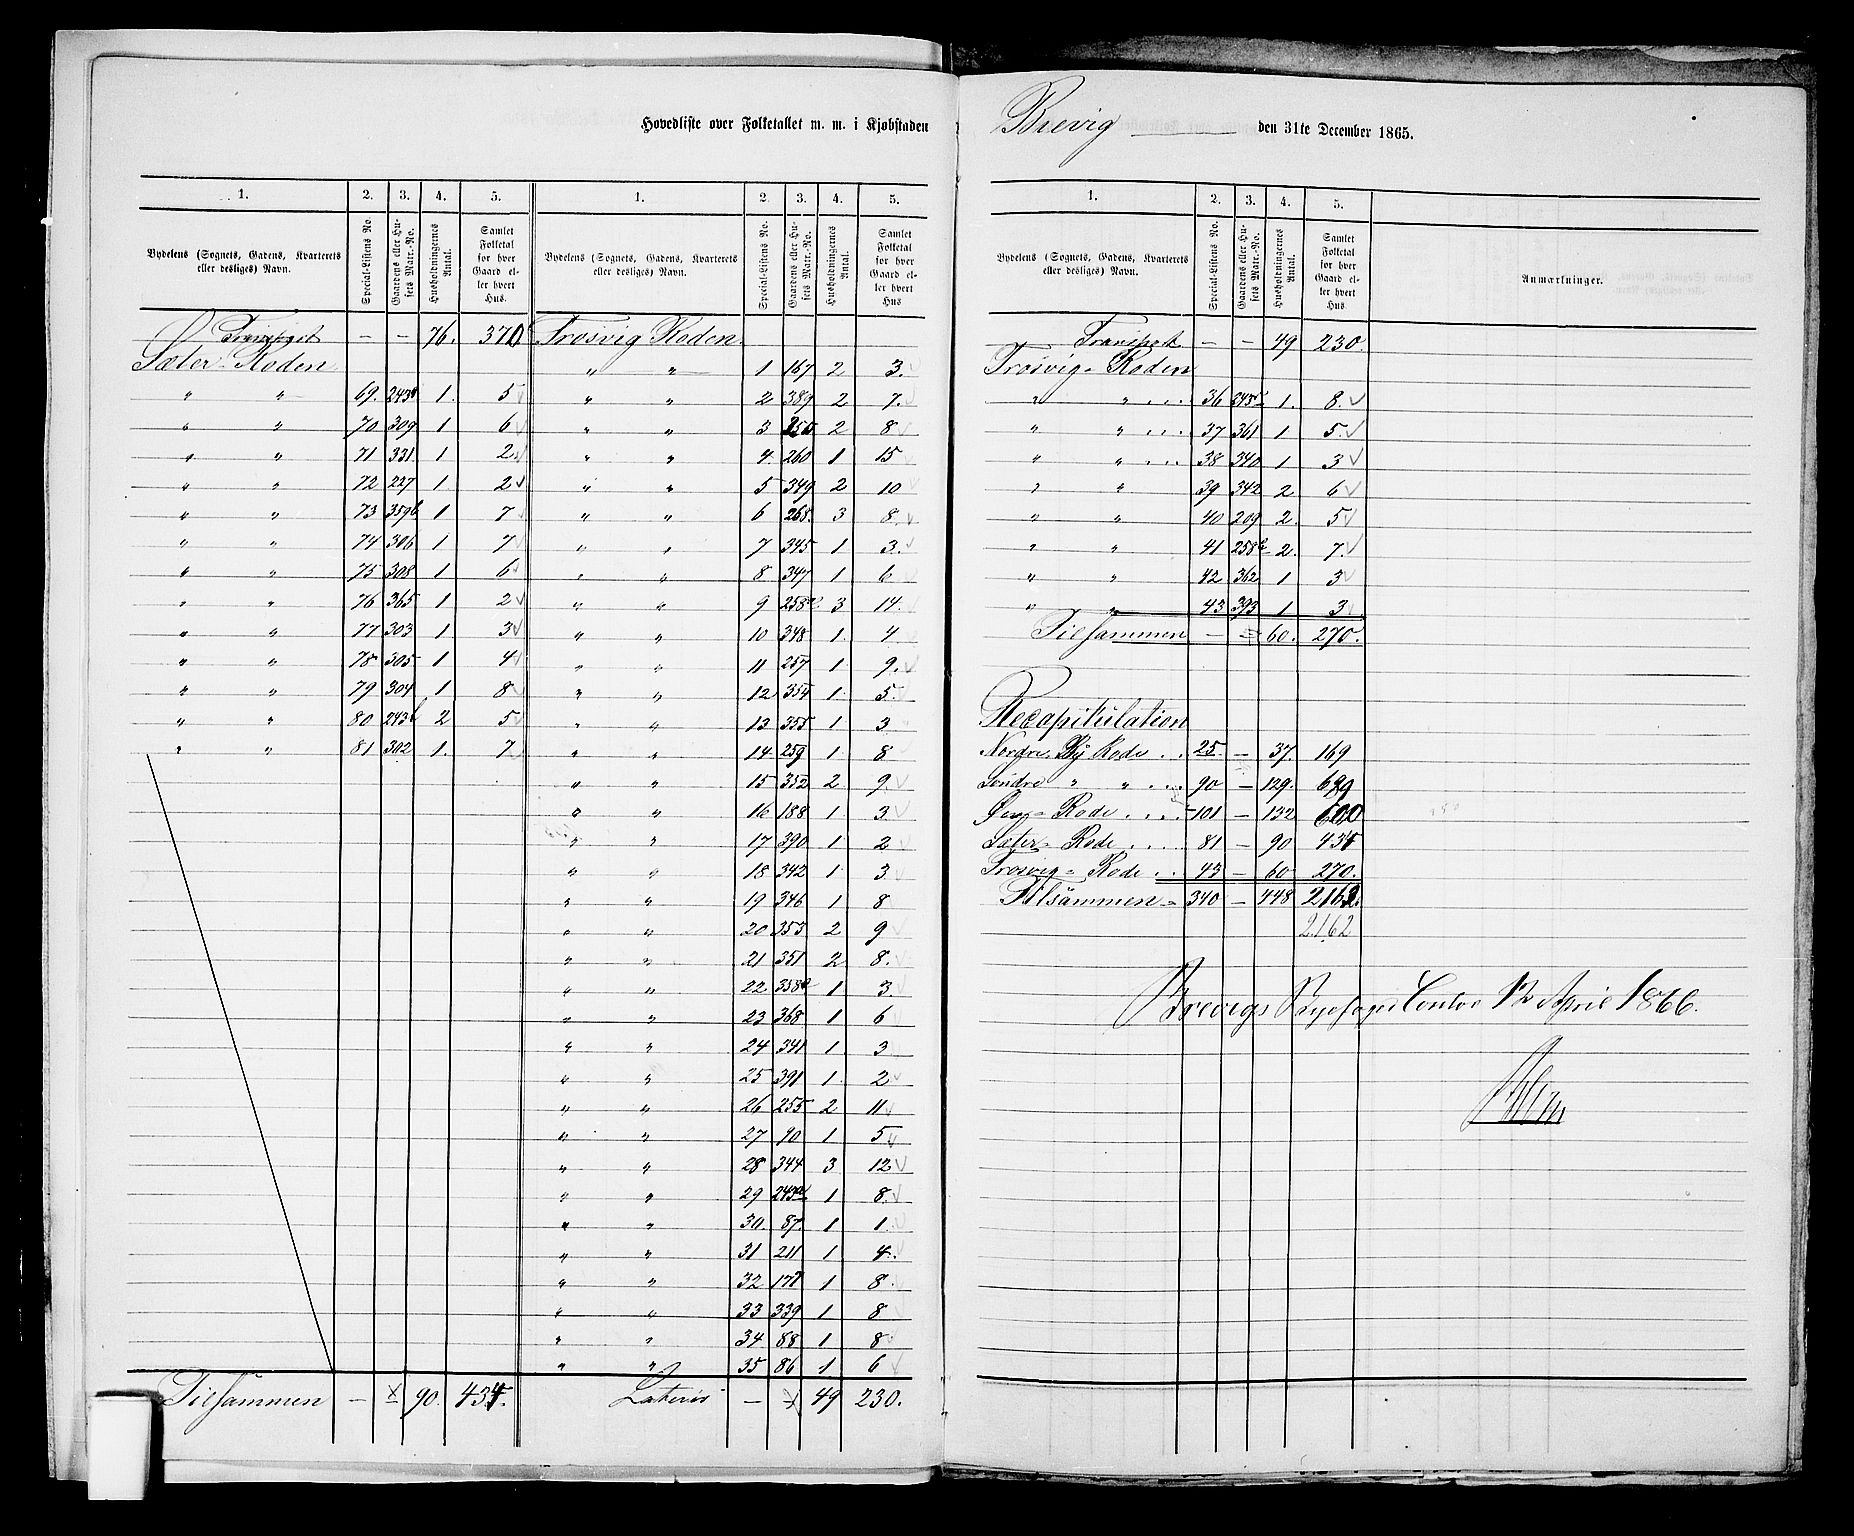 Hovedliste over Folketallet m. m. i Kjøbstaden Brevig den 31te December 1865.
1. 2. 3. 4. 5. 1. 2. 3. 4. 5.
Bydelens (Sognets, Gadens, Kvarterets eller desliges) Navn. Special-Listens No. Gaardens eller Husets Matr.-No. Husholdningernes Antal. Samlet Folketal for hver Gaard eller hvert Hus. Bydelens (Sognets, Gadens, Kvarterets eller desliges) Navn. Special-Listens No. Gaardens eller Husets Matr.-No. Husholdningernes Antal. Samlet Folketal for hver Gaard eller hvert Hus
Transport — — 76. 370
Sæter-Roden
" " 69. 1. 5
" " 70 309 1 6
" " 71 331. 1 2
" " 72 227 1. 2
" " 73 359b 1 7
" " 74 306 1 7
" " 75 308 1 6
" " 76 365 1 2
" " 77 303 1 3
" " 78 305 1 4
" " 79 304 1 8
" " 80 243 2 5
" " 81 302 1. 7
Tilsammen — 90. 434.
Trosvig Roden.
" " 1 167 2 3.
" " 2 389 2 7.
" " 3 2 8
" " 4. 260 1 15
" " 5 349 2 10
" " 6 268. 3 8.
" " 7 345 1 3.
" " 8 347 1 6
" " 9 258a 3 14.
" " 10 348 1. 4
" " 11 257 1 9.
" " 12 354 1. 5.
" " 13 355 1 3
" " 14 259 1 8
" " 15 352 2 9.
" " 16 188 1. 3
" " 17 390 1 2
" " 18 342 1 3
" " 19 346 1 8
" " 20 353 2 9
" " 21 351 2 8.
" " 22 358a 1 3.
" " 23 368 1 6
" " 24 341 1 3
" " 25 391 1 2
" " 26 255 2 11
" " 27 90 1 5
" " 28 344 3 12
" " 29 243 1 8.
" " 30. 87. 1 1.
" " 31 211 1 4.
" " 32 1 8
" " 33 339 1 8
" " 34 88 1 8
" " 35 86 1 6
Lateris — 49 230.
1. 2. 3. 4. 5.
Bydelens (Sognets, Gadens, Kvarterets eller desliges) Navn. Special-Listens No. Gaardens eller Husets Matr.-No. Husholdningernes Antal. Samlet Folketal for hver Gaard eller hvert Hus Anmærkninger.
Transport — — 49 230.
Trosvig-Roden
" " 36 1. 8.
" " 37 361 1 5.
" " 38 340 1 3
" " 39 342 2 6
" " 40 209 2. 5
" " 41 258b 2. 7.
" " 42 362 1 3
" " 43 393 1 3
Tilsammen — = 60. 270.
Recapitulation
Nordre By Rode . . 25 — 37. 169
Søndre " " . . . 90 — 129. 689
Øens-Rode . . . . 101 — 132 600
Sæter-Rode . . . . 81 — 90 434
Trosvig-Rode . . 43 — 60 270.
Tilsammen 340 — 448 2162.
2162
Brevigs Byefoged Contor 12 April 1866.